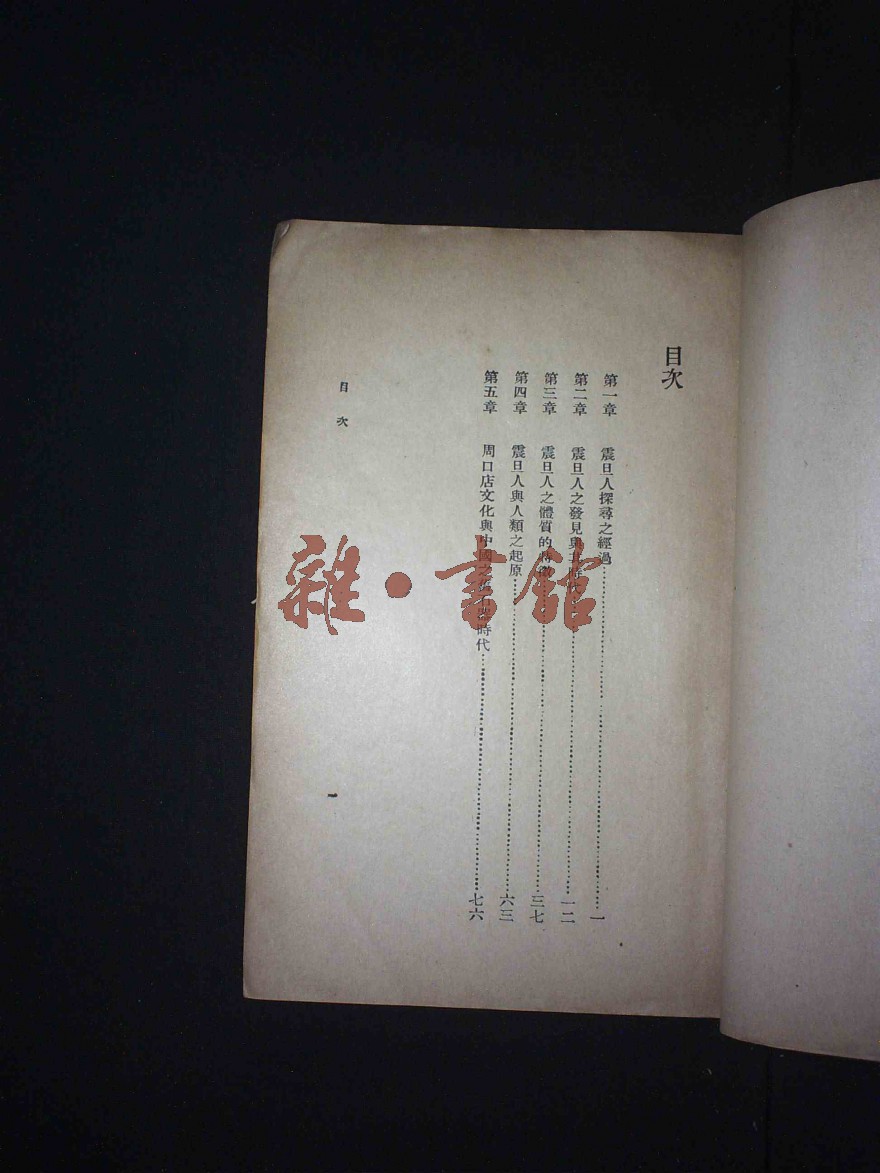 目次
第一章 震旦人探尋之經過 一
第二章 震旦人之發見與其時代 一二
第三章 震旦人之體質的特徵 三七
第四章 震旦人與人類之起原 六三
第五章 周口店文化與中國之舊石器時代 七六
目次
一
雜·書館